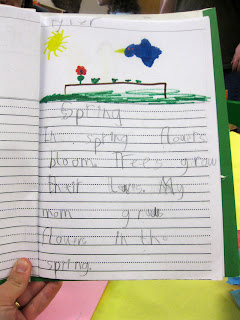 Spring
In spring flowers
bloom. Trees grow
their leves. My
mom
flowers in the
spring.